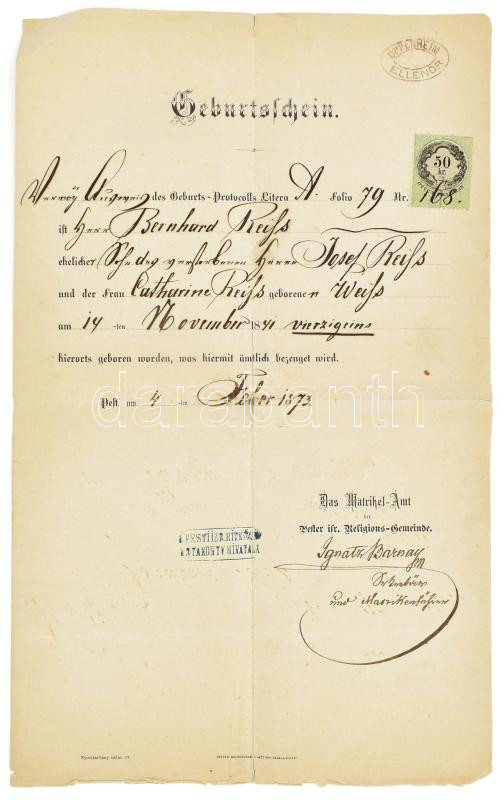 OPPENHEIM
ELLENŐR
Geburtsschein.
50
kr.
Vermög Ausweis des Geburts-Protocolls Litera A. Folio 79 Nr. 168.
ist Herr Bernhard Reiss
ehelicher Sohn des verstorbenen Herrn Josef Reiss
und der Frau Catharine Reiss geborenen Weiss
am 14-ten November 1841 vierzigeins
hierorts geboren worden, was hiermit ämtlich bezeuget wird.
Pest, am 4-ten Feber 1873
darabanth
Das Matrikel-Amt
der
Pester isr. Religions-Gemeinde.
Ignátz Barnay
Sekretär
und Matrikenführer
A PESTI IZR. HITKÖZS.
HIVATALA
Nyomtatvány szám. 17.